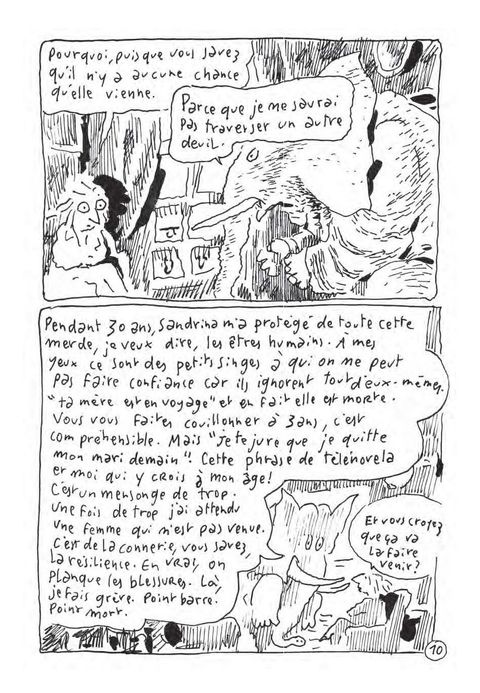 Pourquoi, puisque vous savez
qu'il n'y a aucune chance
qu'elle vienne.
Parce que je me saurai
pas traverser un autre
deuil.
Pendant 30 ans, Sandrina m'a protégé de toute cette
merde, je veux dire, les êtres humains. À mes
yeux ce sont des petits singes à qui on ne peut
pas faire confiance car ils ignorent tout d'eux-mêmes.
"ta mère est en voyage" et en fait elle est morte.
Vous vous faites couillonner à 3 ans, c'est
compréhensible. Mais "Je te jure que je quitte
mon mari demain"! Cette phrase de télénovela
et moi qui y crois à mon âge!
C'est un mensonge de trop.
Une fois de trop j'ai attendu
une femme qui n'est pas venue.
C'est de la connerie, vous savez,
la résilience. En vrai, on
planque les blessures. Là,
je fais grève. Point barre.
Point mort.
Et vous croyez
que ça va
la faire
venir?
10